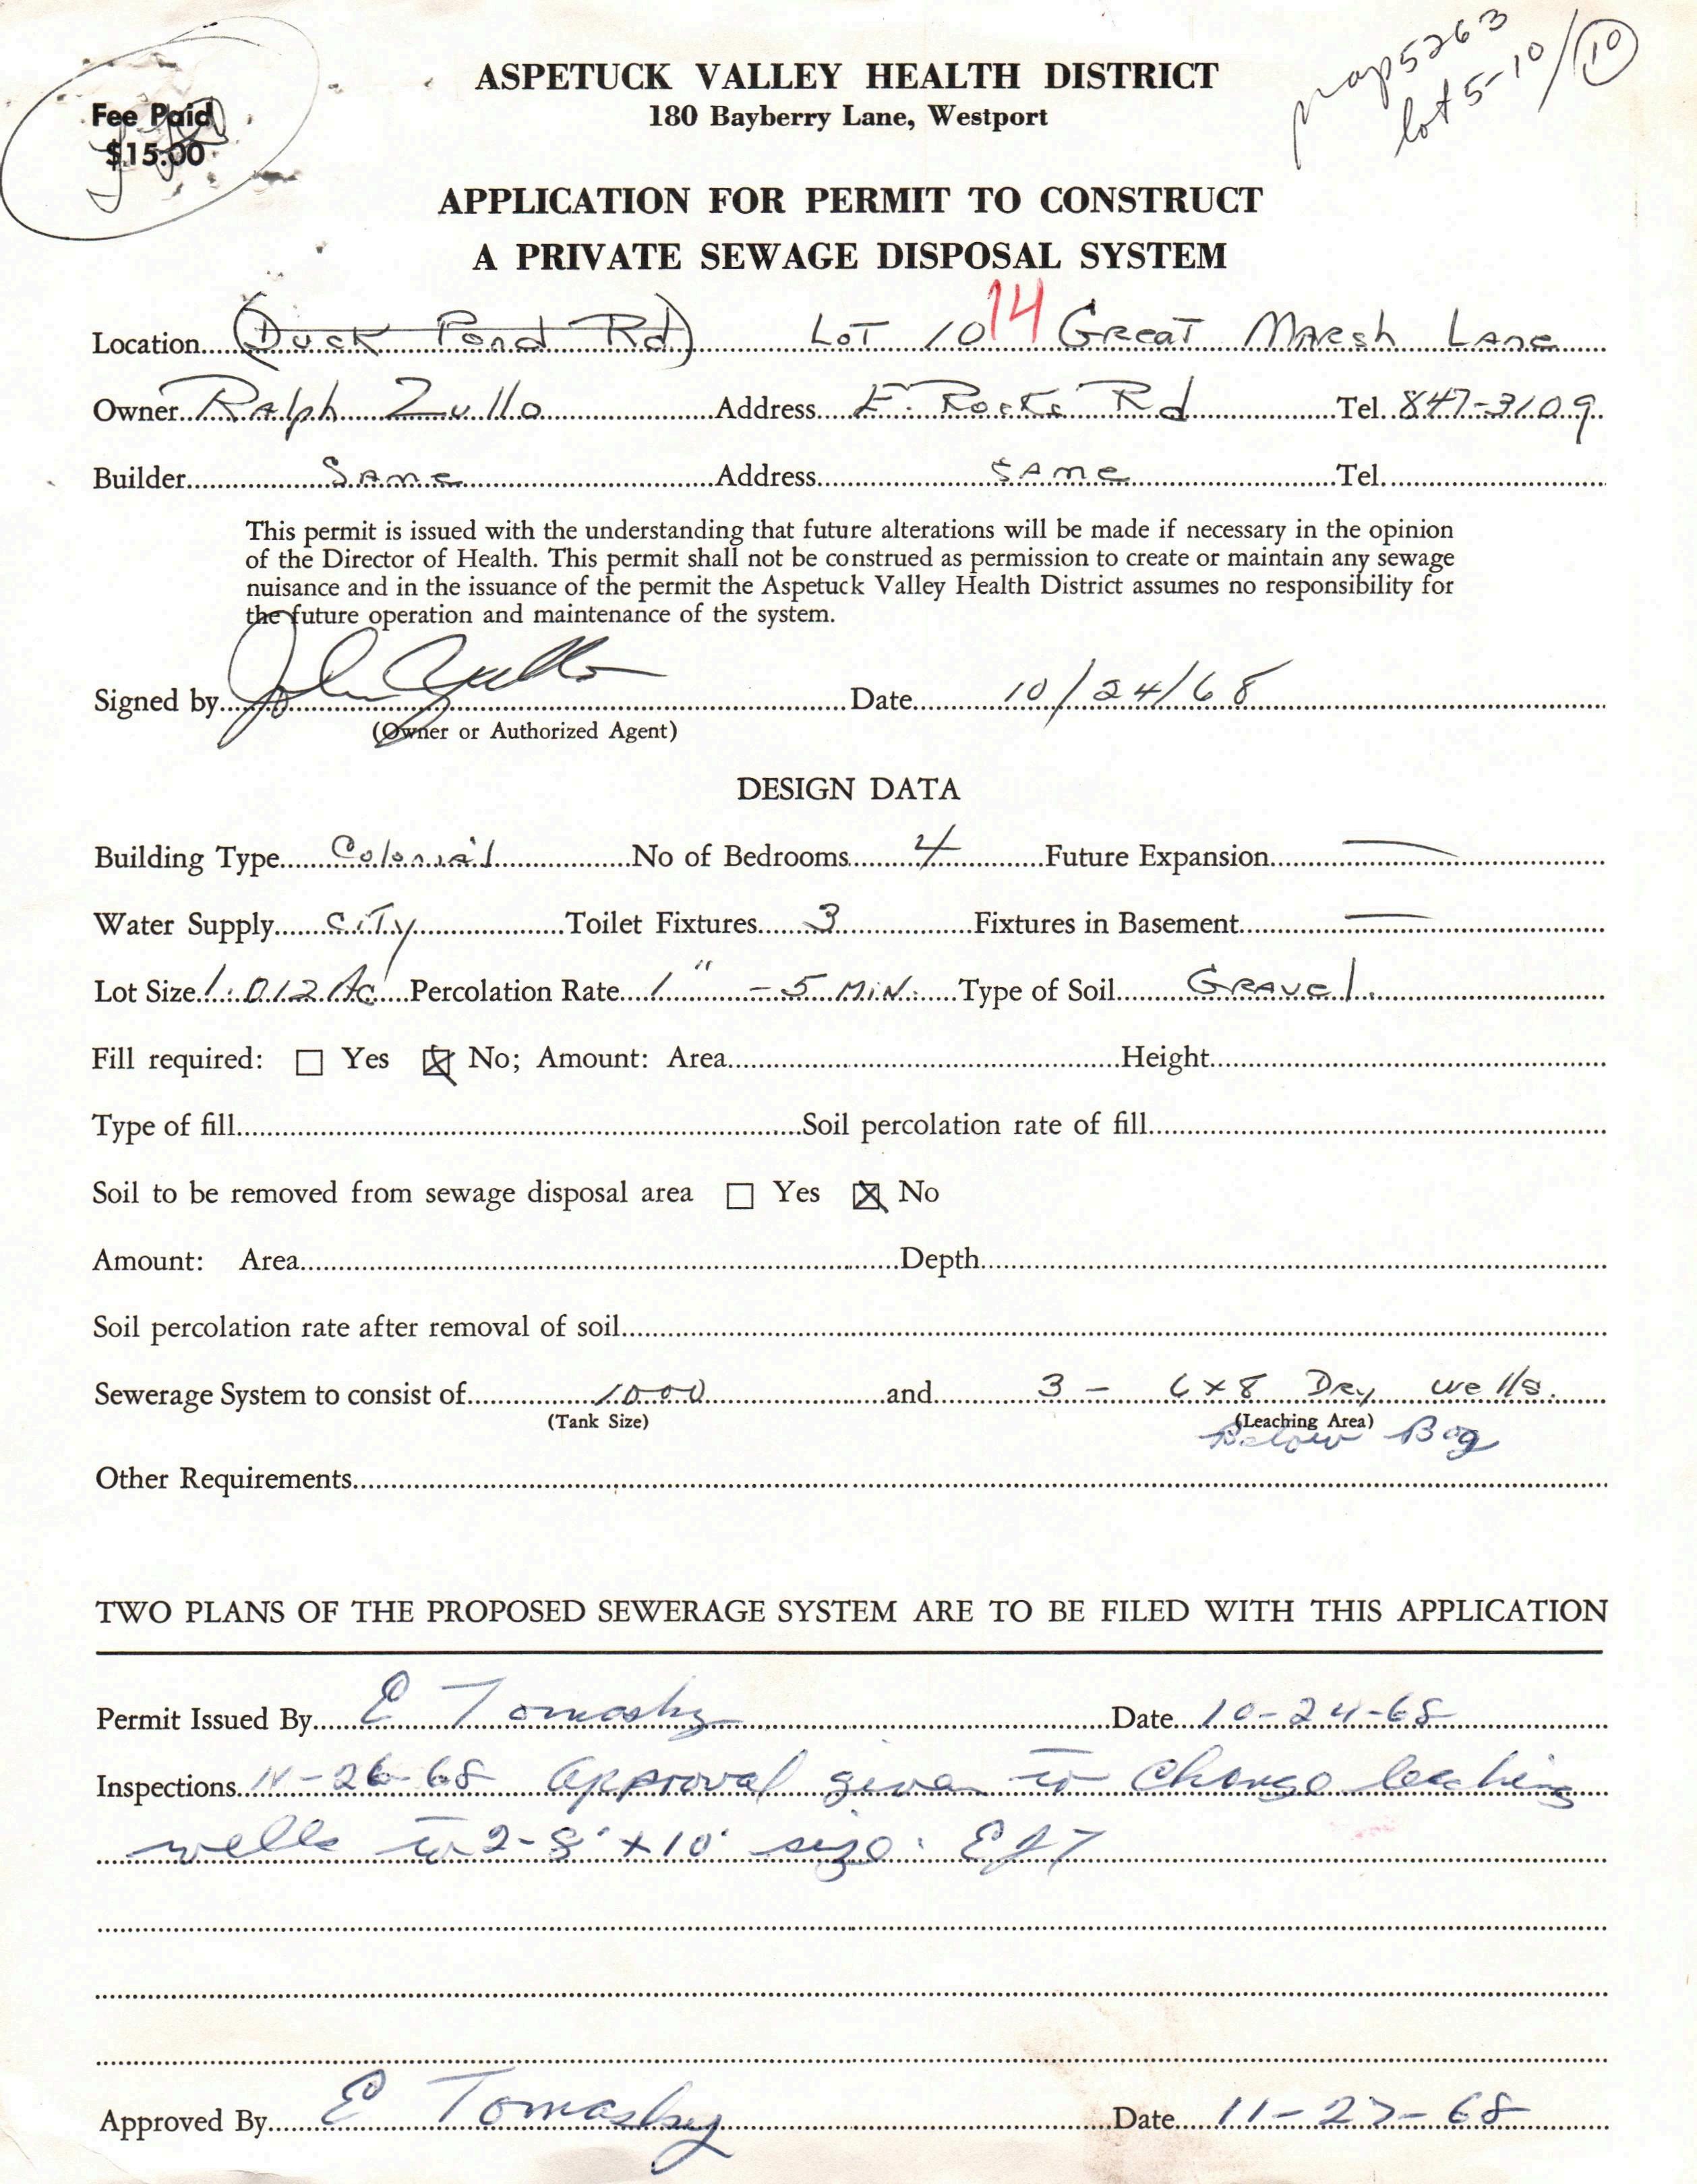 map 5263
lot 5-10 / 10
Fee Paid
$15.00
ASPETUCK VALLEY HEALTH DISTRICT
180 Bayberry Lane, Westport
APPLICATION FOR PERMIT TO CONSTRUCT
A PRIVATE SEWAGE DISPOSAL SYSTEM
Location (Duck Pond Rd) Lot 10 14 Great Marsh Lane
Owner Ralph Zullo Address E. Rocks Rd Tel. 847-3109
Builder Same Address Same Tel.
This permit is issued with the understanding that future alterations will be made if necessary in the opinion
of the Director of Health. This permit shall not be construed as permission to create or maintain any sewage
nuisance and in the issuance of the permit the Aspetuck Valley Health District assumes no responsibility for
the future operation and maintenance of the system.
Signed by John Zullo Date 10/24/68
(Owner or Authorized Agent)
DESIGN DATA
Building Type Colonial No of Bedrooms 4 Future Expansion —
Water Supply City Toilet Fixtures 3 Fixtures in Basement —
Lot Size 1.012 Ac Percolation Rate 1" - 5 Min. Type of Soil Gravel.
Fill required: ☐ Yes ☒ No; Amount: Area Height
Type of fill Soil percolation rate of fill
Soil to be removed from sewage disposal area ☐ Yes ☒ No
Amount: Area Depth
Soil percolation rate after removal of soil
Sewerage System to consist of 1000 and 3 - 6x8 Dry wells.
(Tank Size) (Leaching Area)
Below Bog
Other Requirements
TWO PLANS OF THE PROPOSED SEWERAGE SYSTEM ARE TO BE FILED WITH THIS APPLICATION
Permit Issued By E Tomasky Date 10-24-68
Inspections 11-26-68 approval given to change leaching
wells to 2-8' x 10' size. EJT
Approved By E Tomasky Date 11-27-68